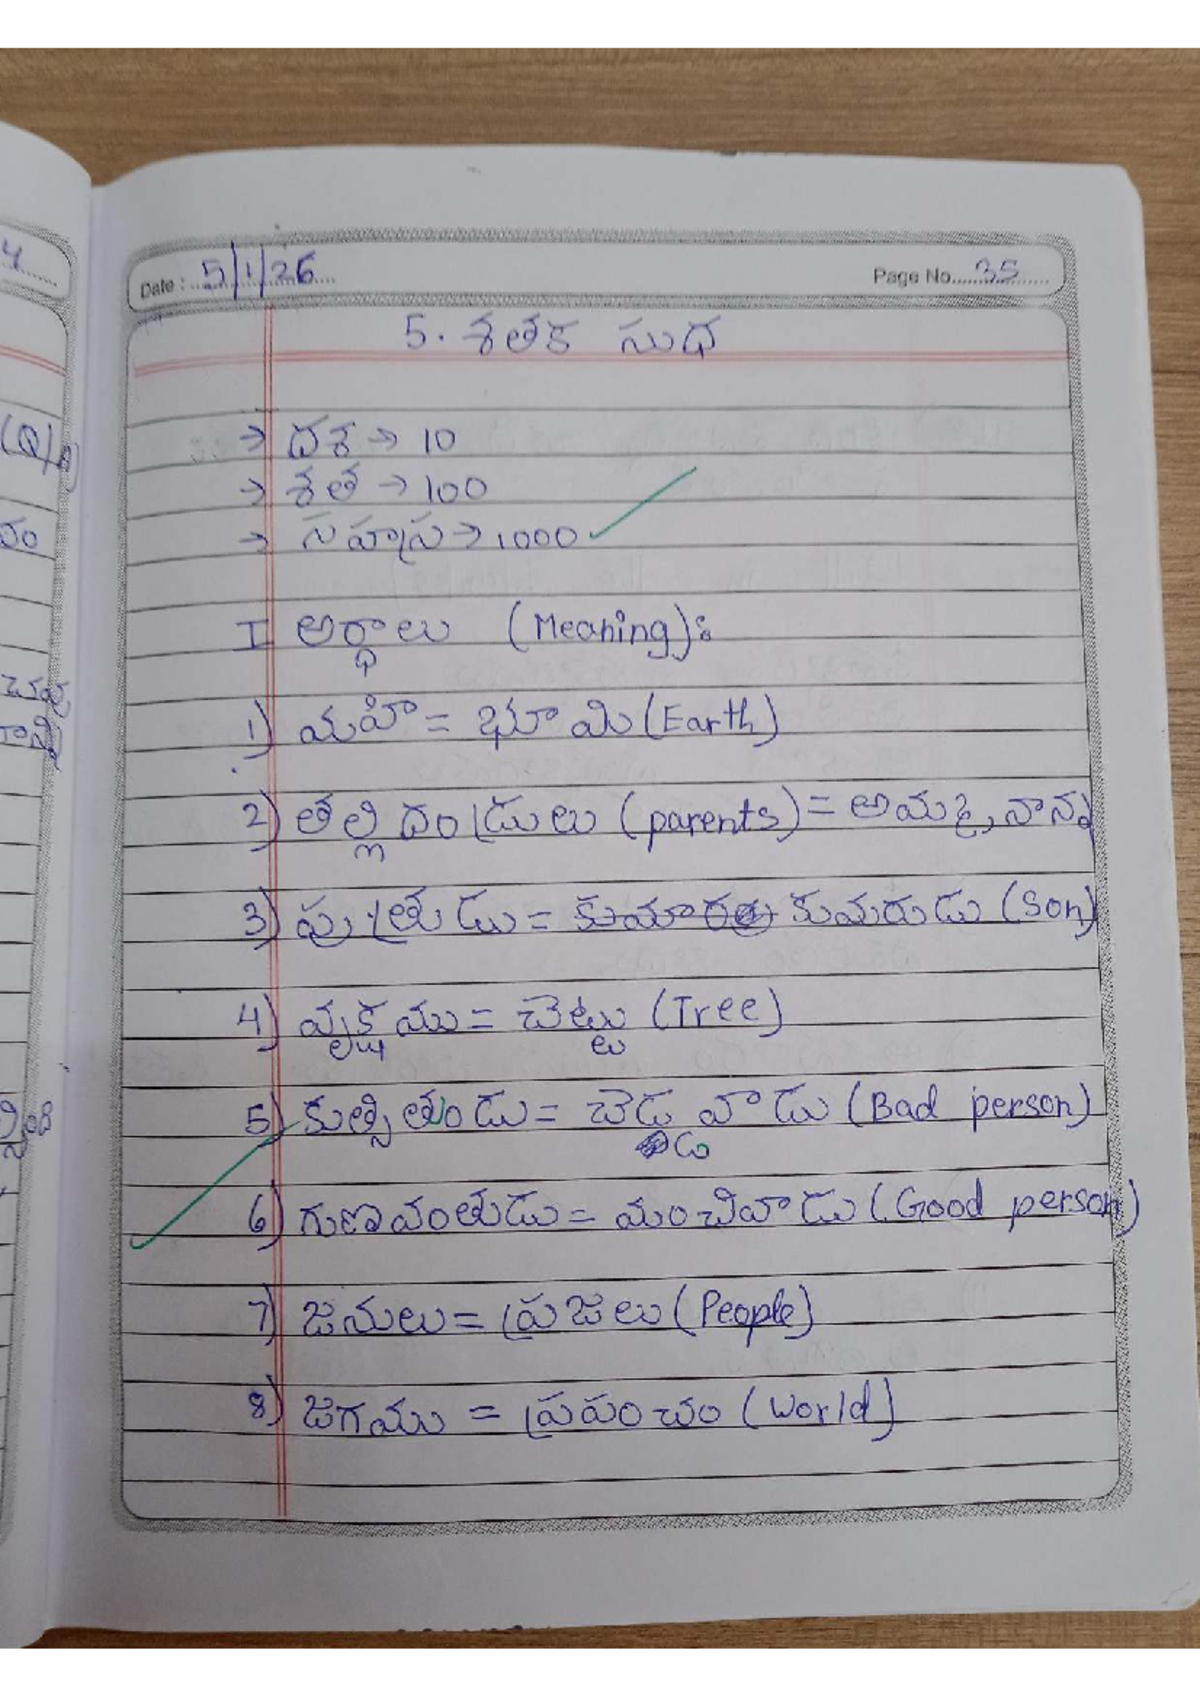 Date : 5/1/26 Page No. 35
5. శతక సుధ
→ దశ → 10
→ శత → 100
→ సహస్ర → 1000
I అర్థాలు (Meaning):
1) మహి = భూమి (Earth)
2) తల్లిదండ్రులు (parents) = అమ్మ, నాన్న
3) పుత్రుడు = కుమరుడు (Son)
4) వృక్షము = చెట్టు (Tree)
5) కుత్సితుండు = చెడ్డ వాడు (Bad person)
6) గుణవంతుడు = మంచివాడు (Good person)
7) జనులు = ప్రజలు (People)
8) జగము = ప్రపంచం (World)